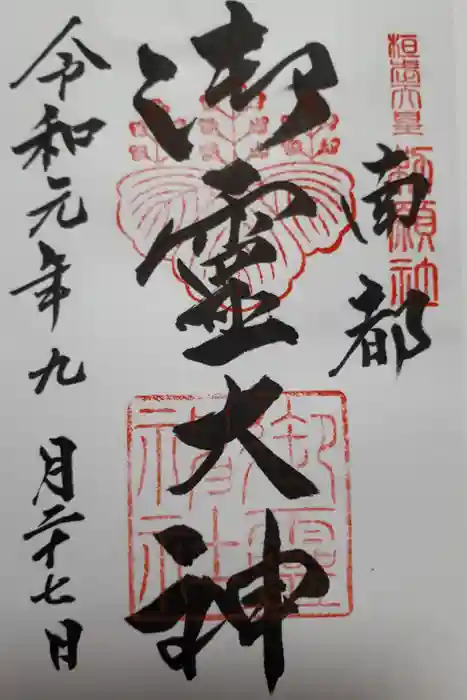 桓武天皇勅願社
南都
御靈大神
御靈神社
令和元年九月二十七日